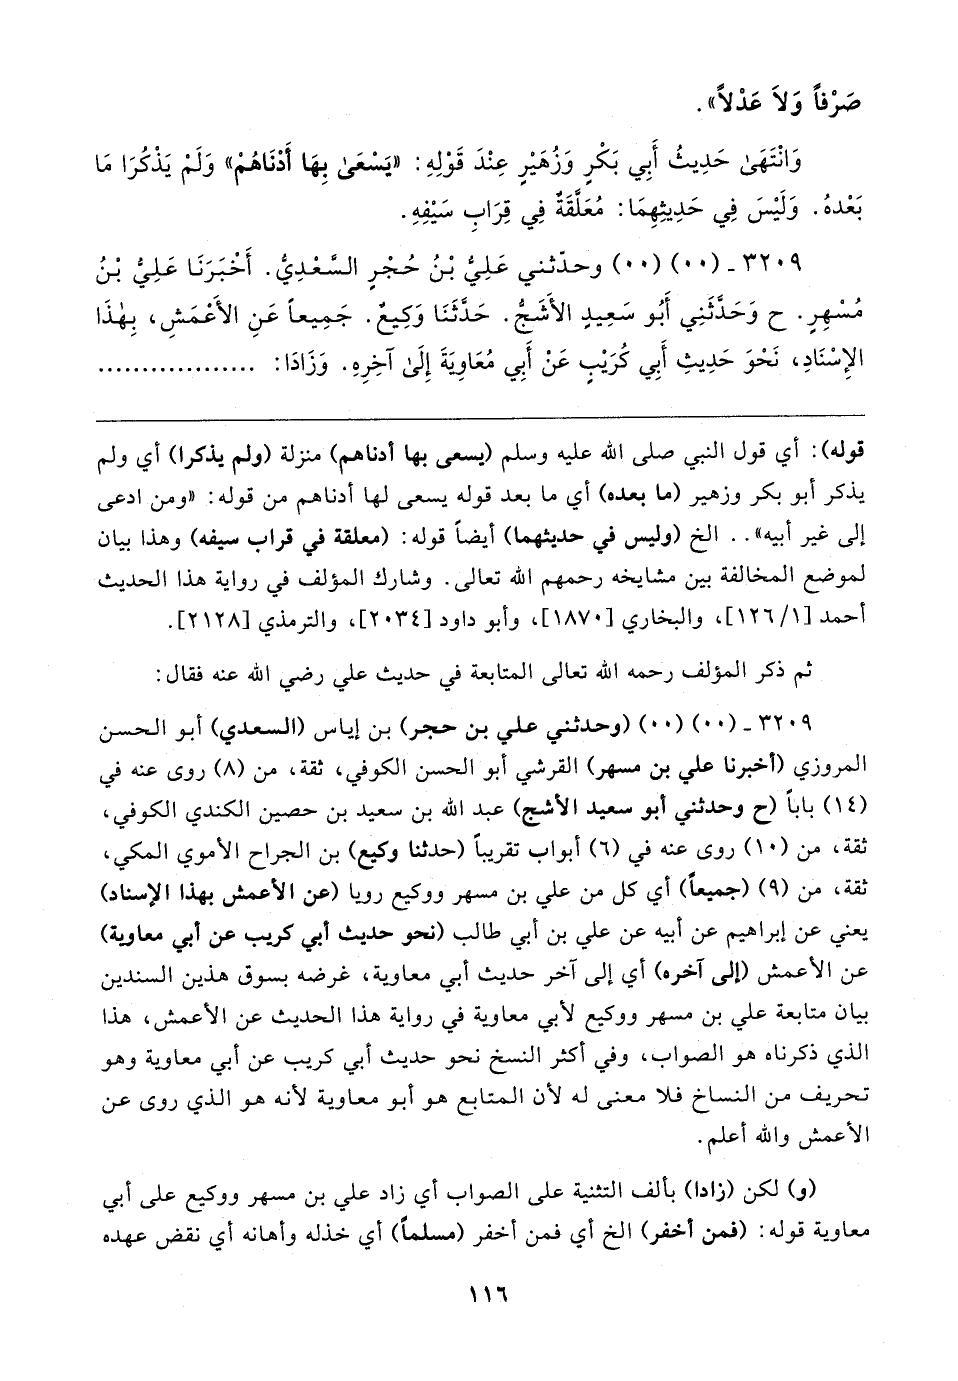 صَرْفاً وَلاَ عَدْلاً».
وَانْتَهَىٰ حَدِيثُ أَبِي بَكْرٍ وَزُهَيْرٍ عِنْدَ قَوْلِهِ: «يَسْعَىٰ بِهَا أَدْنَاهُمْ» وَلَمْ يَذْكُرَا مَا
بَعْدهُ. وَلَيْسَ فِي حَدِيثِهِمَا: مُعَلَّقَةٌ فِي قِرَابِ سَيْفِهِ.
٣٢٠٩ - (٠٠) (٠٠) وحدّثني عَلِيُّ بْنُ حُجْرٍ السَّعْدِيُّ. أَخْبَرَنَا عَلِيُّ بْنُ
مُسْهِرٍ. ح وَحَدَّثَنِي أَبُو سَعِيدٍ الأَشَجُّ. حَدَّثَنَا وَكِيعٌ. جَمِيعاً عَنِ الأَعْمَشِ، بِهٰذَا
الإِسْنَادِ، نَحْوَ حَدِيثِ أَبِي كُرَيْبٍ عَنْ أَبِي مُعَاوِيَةَ إِلَىٰ آخِرِهِ. وَزَادَا: ..................
قوله): أي قول النبي صلى الله عليه وسلم (يسعى بها أدناهم) منزلة (ولم يذكرا) أي ولم
يذكر أبو بكر وزهير (ما بعده) أي ما بعد قوله يسعى لها أدناهم من قوله: «ومن ادعى
إلى غير أبيه».. الخ (وليس في حديثهما) أيضاً قوله: (معلقة في قراب سيفه) وهذا بيان
لموضع المخالفة بين مشايخه رحمهم الله تعالى. وشارك المؤلف في رواية هذا الحديث
أحمد [١/ ١٢٦]، والبخاري [١٨٧٠]، وأبو داود [٢٠٣٤]، والترمذي [٢١٢٨].
ثم ذكر المؤلف رحمه الله تعالى المتابعة في حديث علي رضي الله عنه فقال:
٣٢٠٩ - (٠٠) (٠٠) (وحدثني علي بن حجر) بن إياس (السعدي) أبو الحسن
المروزي (أخبرنا علي بن مسهر) القرشي أبو الحسن الكوفي، ثقة، من (٨) روى عنه في
(١٤) باباً (ح وحدثني أبو سعيد الأشج) عبد الله بن سعيد بن حصين الكندي الكوفي،
ثقة، من (١٠) روى عنه في (٦) أبواب تقريباً (حدثنا وكيع) بن الجراح الأموي المكي،
ثقة، من (٩) (جميعاً) أي كل من علي بن مسهر ووكيع رويا (عن الأعمش بهذا الإسناد)
يعني عن إبراهيم عن أبيه عن علي بن أبي طالب (نحو حديث أبي كريب عن أبي معاوية)
عن الأعمش (إلى آخره) أي إلى آخر حديث أبي معاوية، غرضه بسوق هذين السندين
بيان متابعة علي بن مسهر ووكيع لأبي معاوية في رواية هذا الحديث عن الأعمش، هذا
الذي ذكرناه هو الصواب، وفي أكثر النسخ نحو حديث أبي كريب عن أبي معاوية وهو
تحريف من النساخ فلا معنى له لأن المتابع هو أبو معاوية لأنه هو الذي روى عن
الأعمش والله أعلم.
(و) لكن (زادا) بألف التثنية على الصواب أي زاد علي بن مسهر ووكيع على أبي
معاوية قوله: (فمن أخفر) الخ أي فمن أخفر (مسلماً) أي خذله وأهانه أي نقض عهده
١١٦